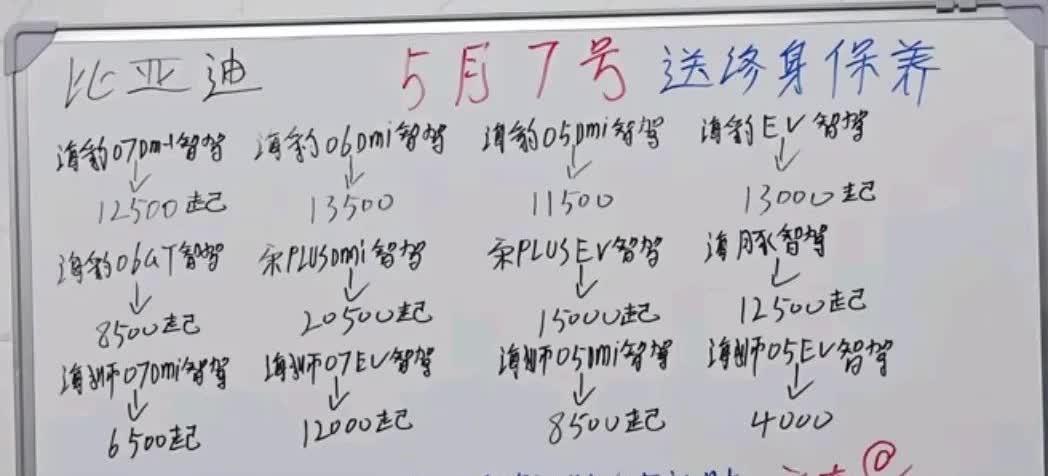 比亚迪 5月7号 送终身保养
海豹07Dm-i智驾 海豹06Dmi智驾 海豹05Dmi智驾 海豹EV智驾
12500起 13500 11500 13000起
海豹06GT智驾 宋PLUSDmi智驾 宋PLUSEV智驾 海豚智驾
8500起 20500起 15000起 12500起
海狮07Dmi智驾 海狮07EV智驾 海狮05Dmi智驾 海狮05EV智驾
6500起 12000起 8500起 4000